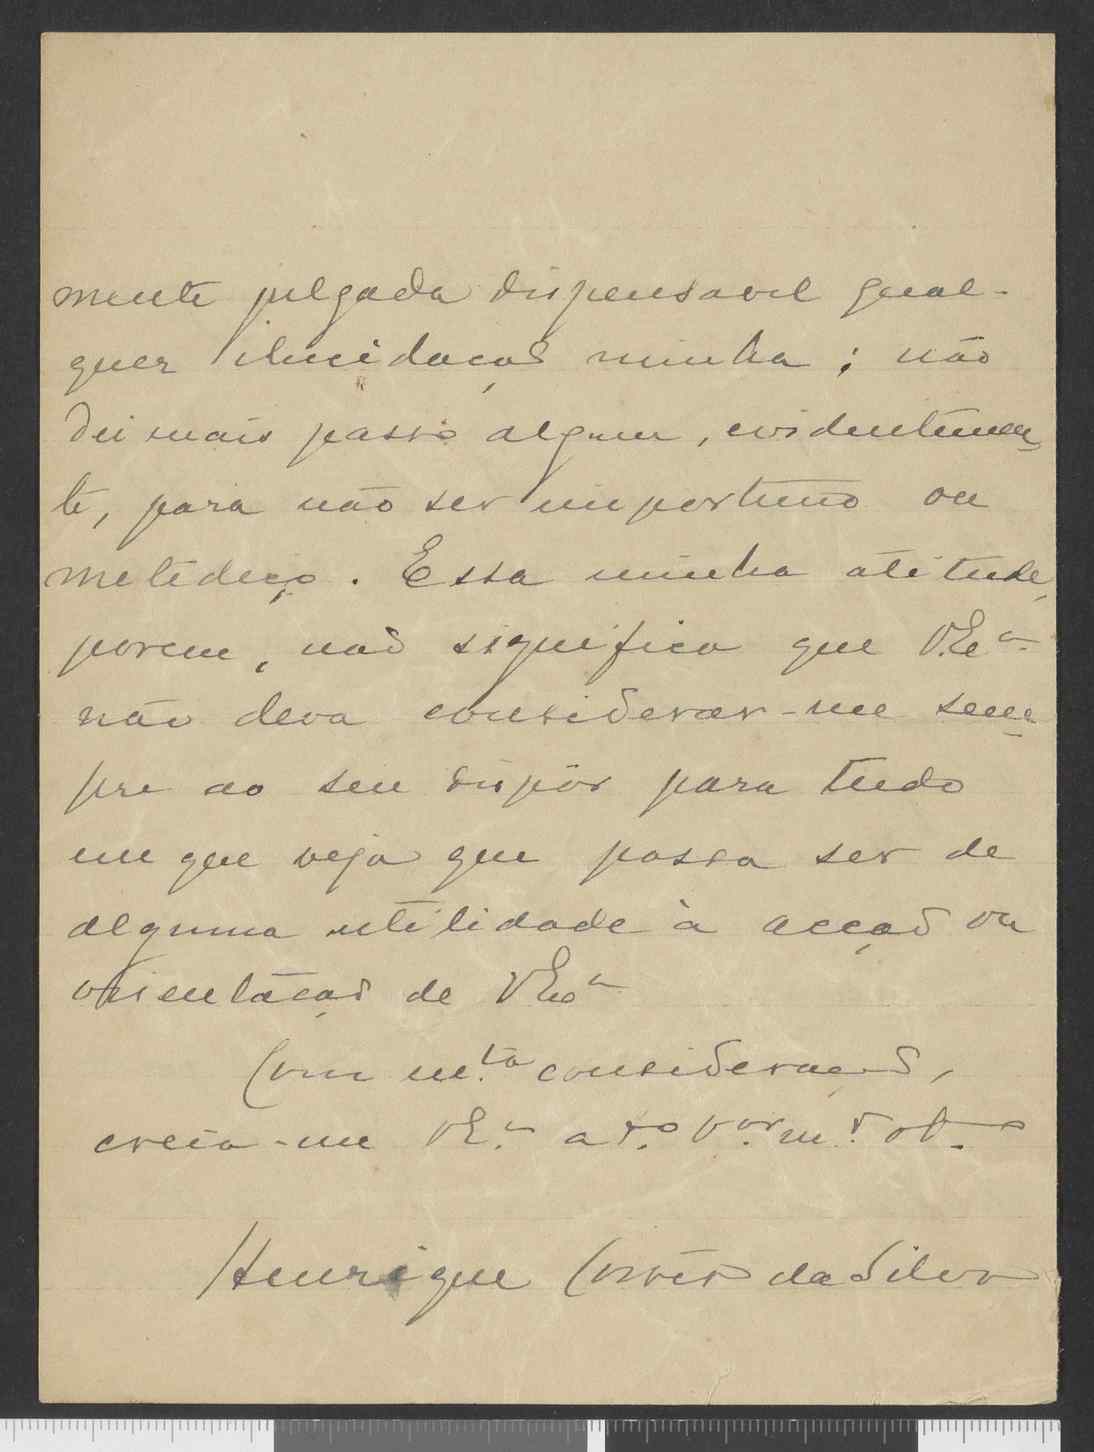 mente julgada dispensavel qual-
quer ilucidação minha; não
dei mais passo algum, evidentemen
te, para não ser importuno ou
metediço. Essa minha atitude,
porem, não significa que V.Eª
não deva considerar-me sem
pre ao seu dispôr para tudo
em que veja que possa ser de
alguma utilidade à acção ou
orientação de VExª
Com m.ta consideração,
creia-me VE.ª at.º V.or m.to ob.do
Henrique Corrêa da Silva